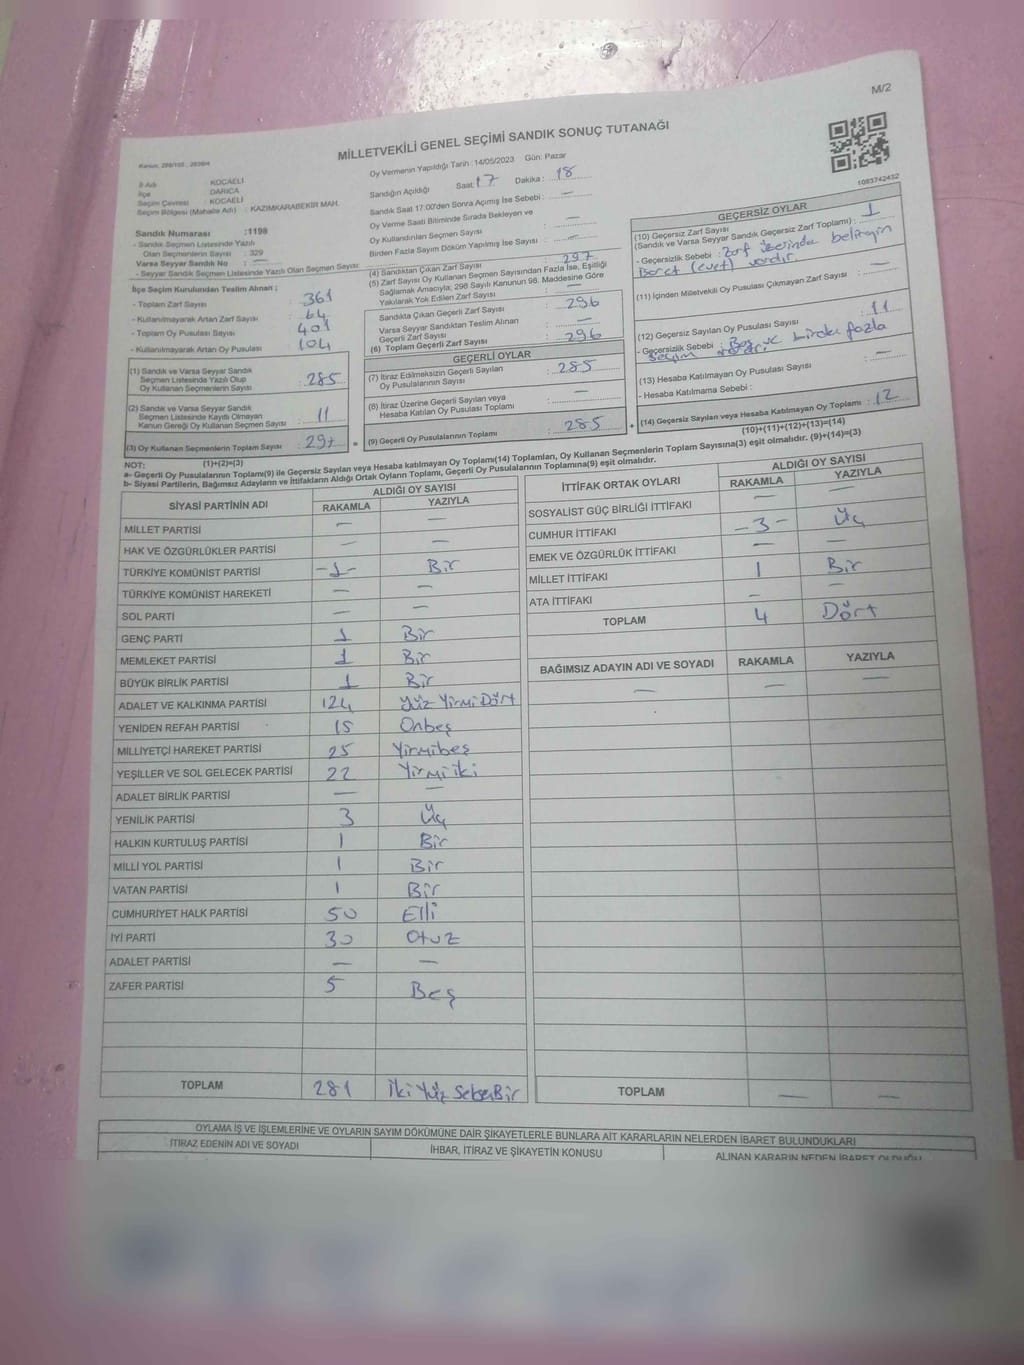 M/2
MİLLETVEKİLİ GENEL SEÇİMİ SANDIK SONUÇ TUTANAĞI
1083742432
İl Adı : KOCAELİ
İlçe : DARICA
Seçim Çevresi : KOCAELİ
Seçim Bölgesi (Mahalle Adı) : KAZIMKARABEKİR MAH.
Sandık Numarası :1198
- Sandık Seçmen Listesinde Yazılı
Olan Seçmenlerin Sayısı : 329
Varsa Seyyar Sandık No : —
- Seyyar Sandık Seçmen Listesinde Yazılı Olan Seçmen Sayısı:
İlçe Seçim Kurulundan Teslim Alınan ;
- Toplam Zarf Sayısı : 361
- Kullanılmayarak Artan Zarf Sayısı : 64
- Toplam Oy Pusulası Sayısı : 401
- Kullanılmayarak Artan Oy Pusulası : 104
(1) Sandık ve Varsa Seyyar Sandık
Seçmen Listesinde Yazılı Olup
Oy Kullanan Seçmenlerin Sayısı : 285
(2) Sandık ve Varsa Seyyar Sandık
Seçmen Listesinde Kaydı Olmayan
Kanun Gereği Oy Kullanan Seçmen Sayısı : 11
(3) Oy Kullanan Seçmenlerin Toplam Sayısı : 297
Oy Vermenin Yapıldığı Tarih :14/05/2023 Gün: Pazar
Sandığın Açıldığı Saat : 17 Dakika : 18
Sandık Saat 17:00'den Sonra Açılmış İse Sebebi : —
Oy Verme Saati Bitiminde Sırada Bekleyen ve
Oy Kullandırılan Seçmen Sayısı : —
Birden Fazla Sayım Döküm Yapılmış İse Sayısı : —
(4) Sandıktan Çıkan Zarf Sayısı : 297
(5) Zarf Sayısı Oy Kullanan Seçmen Sayısından Fazla İse, Eşitliği
Sağlamak Amacıyla; 298 Sayılı Kanunun 98. Maddesine Göre
Yakılarak Yok Edilen Zarf Sayısı : —
Sandıkta Çıkan Geçerli Zarf Sayısı : 296
Varsa Seyyar Sandıktan Teslim Alınan
Geçerli Zarf Sayısı : —
(6) Toplam Geçerli Zarf Sayısı : 296
GEÇERLİ OYLAR
(7) İtiraz Edilmeksizin Geçerli Sayılan
Oy Pusulalarının Sayısı : 285
(8) İtiraz Üzerine Geçerli Sayılan veya
Hesaba Katılan Oy Pusulası Toplamı : —
= (9) Geçerli Oy Pusulalarının Toplamı : 285
GEÇERSİZ OYLAR
(10) Geçersiz Zarf Sayısı
(Sandık ve Varsa Seyyar Sandık Geçersiz Zarf Toplamı) : 1
- Geçersizlik Sebebi : Zarf üzerinde belirgin
işaret (evet) vardır.
(11) İçinden Milletvekili Oy Pusulası Çıkmayan Zarf Sayısı : —
(12) Geçersiz Sayılan Oy Pusulası Sayısı : 11
- Geçersizlik Sebebi : Boş ve birden fazla
seçim vardır.
(13) Hesaba Katılmayan Oy Pusulası Sayısı : —
- Hesaba Katılmama Sebebi :
+ (14) Geçersiz Sayılan veya Hesaba Katılmayan Oy Toplamı : 12
(10)+(11)+(12)+(13)=(14)
NOT: (1)+(2)=(3)
a- Geçerli Oy Pusulalarının Toplamı(9) ile Geçersiz Sayılan veya Hesaba katılmayan Oy Toplamı(14) Toplamları, Oy Kullanan Seçmenlerin Toplam Sayısına(3) eşit olmalıdır. (9)+(14)=(3)
b- Siyasi Partilerin, Bağımsız Adayların ve İttifakların Aldığı Ortak Oyların Toplamı, Geçerli Oy Pusulalarının Toplamına(9) eşit olmalıdır.
SİYASİ PARTİNİN ADI ALDIĞI OY SAYISI
RAKAMLA YAZIYLA
MİLLET PARTİSİ — —
HAK VE ÖZGÜRLÜKLER PARTİSİ — —
TÜRKİYE KOMÜNİST PARTİSİ -1- Bir
TÜRKİYE KOMÜNİST HAREKETİ — —
SOL PARTİ — —
GENÇ PARTİ 1 Bir
MEMLEKET PARTİSİ 1 Bir
BÜYÜK BİRLİK PARTİSİ 1 Bir
ADALET VE KALKINMA PARTİSİ 124 Yüz Yirmi Dört
YENİDEN REFAH PARTİSİ 15 Onbeş
MİLLİYETÇİ HAREKET PARTİSİ 25 Yirmibeş
YEŞİLLER VE SOL GELECEK PARTİSİ 22 Yirmi iki
ADALET BİRLİK PARTİSİ — —
YENİLİK PARTİSİ 3 Üç
HALKIN KURTULUŞ PARTİSİ 1 Bir
MİLLİ YOL PARTİSİ 1 Bir
VATAN PARTİSİ 1 Bir
CUMHURİYET HALK PARTİSİ 50 Elli
İYİ PARTİ 30 Otuz
ADALET PARTİSİ — —
ZAFER PARTİSİ 5 Beş
TOPLAM 281 İki Yüz SeksenBir
İTTİFAK ORTAK OYLARI ALDIĞI OY SAYISI
RAKAMLA YAZIYLA
SOSYALİST GÜÇ BİRLİĞİ İTTİFAKI — —
CUMHUR İTTİFAKI -3- Üç
EMEK VE ÖZGÜRLÜK İTTİFAKI — —
MİLLET İTTİFAKI 1 Bir
ATA İTTİFAKI — —
TOPLAM 4 Dört
BAĞIMSIZ ADAYIN ADI VE SOYADI RAKAMLA YAZIYLA
— — —
TOPLAM — —
OYLAMA İŞ VE İŞLEMLERİNE VE OYLARIN SAYIM DÖKÜMÜNE DAİR ŞİKAYETLERLE BUNLARA AİT KARARLARIN NELERDEN İBARET BULUNDUKLARI
İTİRAZ EDENİN ADI VE SOYADI İHBAR, İTİRAZ VE ŞİKAYETİN KONUSU ALINAN KARARIN NEDEN İBARET OLDUĞU